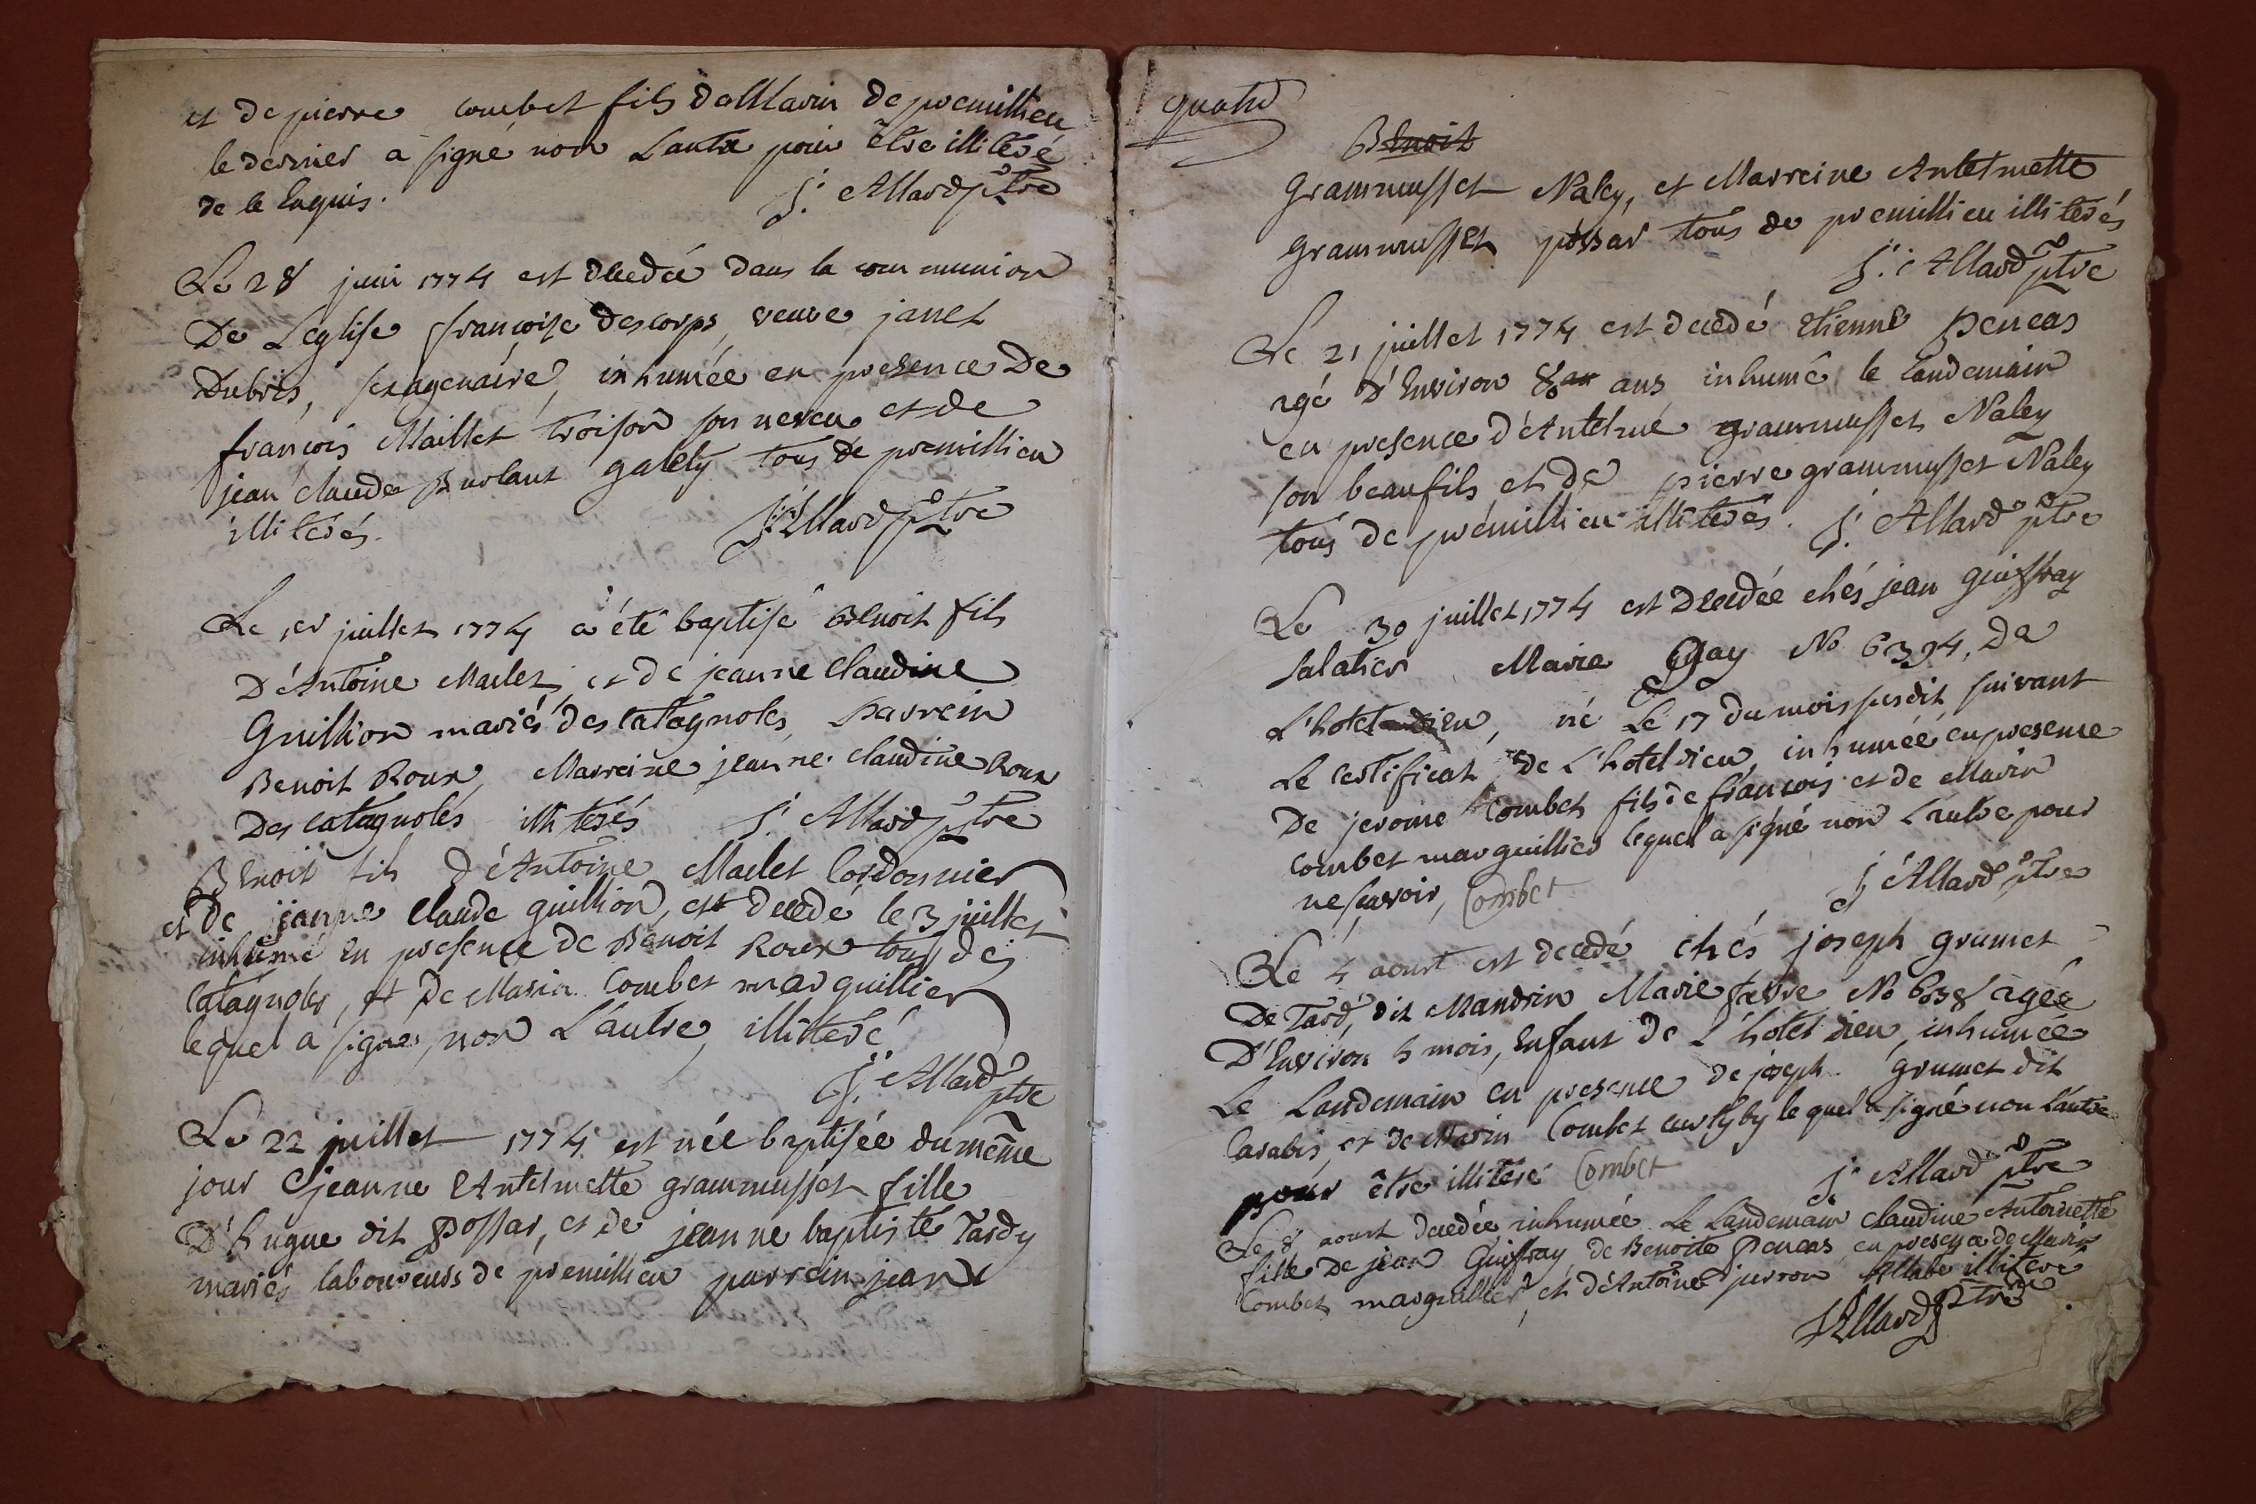 et de pierre combet fils de Marin de premillieu
le dernier a signé non Lautre pour être illiteré
de le Enquis. J. Allard ptre
Le 28 juin 1774 est decedée dans la communion
De L'eglise françoise Descorps, veuve janet
Dubris, sexagenaire, inhumée en presence De
françois Maillet troison son neveu et de
jean claude Burlant galety tous de premillieu
illiterés. J. Allard ptre
Le 1er juillet 1774 a été baptisé Benoit fils
D'Antoine Marlet, et de jeanne Claudine
Guillion mariés des Catagnoles, Parrein
Benoit Roux, Marreine jeanne Claudine Roux
Des catagnolés illiterés J. Allard ptre
Benoit fils d'Antoine Marlet Cordonnier
et De jeanne Claude guillion, est decedé le 3 juillet
inhumé En presence de Benoit Roux tous des
Catagnoles, et De Marin Combet marguillier
lequel a signé, non L'autre, illitteré
J. Allard ptre
Le 22 juillet 1774 est née baptisée du même
jour jeanne Antelmette grammusset fille
D'hugue dit Possar, et de jeanne baptiste Tardy
mariés laboureurs de premillieu parrein jean
quatre
Benoit
grammusset Naley, et Marreine Antelmette
grammusset possar tous de premillieu illiterés
J. Allard ptre
Le 21 juillet 1774 est decedé Etienne Peneas
agé D'Environ 80 ans inhumé le landemain
en presence d'Antelme grammusset Naley
son beaufils et de pierre grammusset Naley
tous de premillieu illiterés. J. Allard ptre
Le 30 juillet 1774 est Decedée chés jean guiffray
Salatier Marie Gay No 6394, De
L'hotel dieu, né Le 17 du mois susdit suivant
Le Certificat de L'hotel dieu, inhumée en presence
De jerome Combet fils de françois et de Marin
Combet marguillier lequel a signé non L'autre pour
ne savoir, Combet J. Allard ptre
Le 4 aoust est decedé chés joseph grumet
De Tard, dit Mandrin Marie favre No 6038 agée
D'Environ 5 mois, Enfant de L'hotel dieu, inhumée
Le Landemain en presence de joseph grumet dit
Carabis et de Marin Combet le quel a signé non L'autre
pour être illiteré Combet J. Allard ptre
Le 8 aoust decedée, inhumée Le Landemain Claudine Antoinette
fille De jean Guiffray, de Benoite Peneas, en presence de Marin
Combet marguillier, et d'Antoine jurron illiteré
J. Allard Ptre